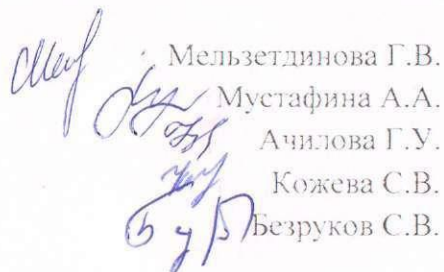 Мельзетдинова Г.В.
Мустафина А.А.
Ачилова Г.У.
Кожева С.В.
Безруков С.В.